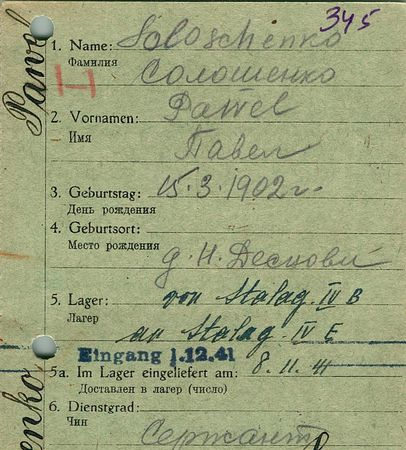 345
1. Name: Soloschenko
Фамилия
Солошенко
2. Vornamen: Pawel
Имя
Павел
3. Geburtstag: 15.3.1902 г.
День рождения
4. Geburtsort:
Место рождения
д. Н.
5. Lager: von Stalag. IV B
Лагер
an Stalag. IV E
Eingang 1.12.41
5a. Im Lager eingeliefert am: 8. 11. 41
Доставлен в лагер (число)
6. Dienstgrad:
Чин
Сержант
Pawel
enko